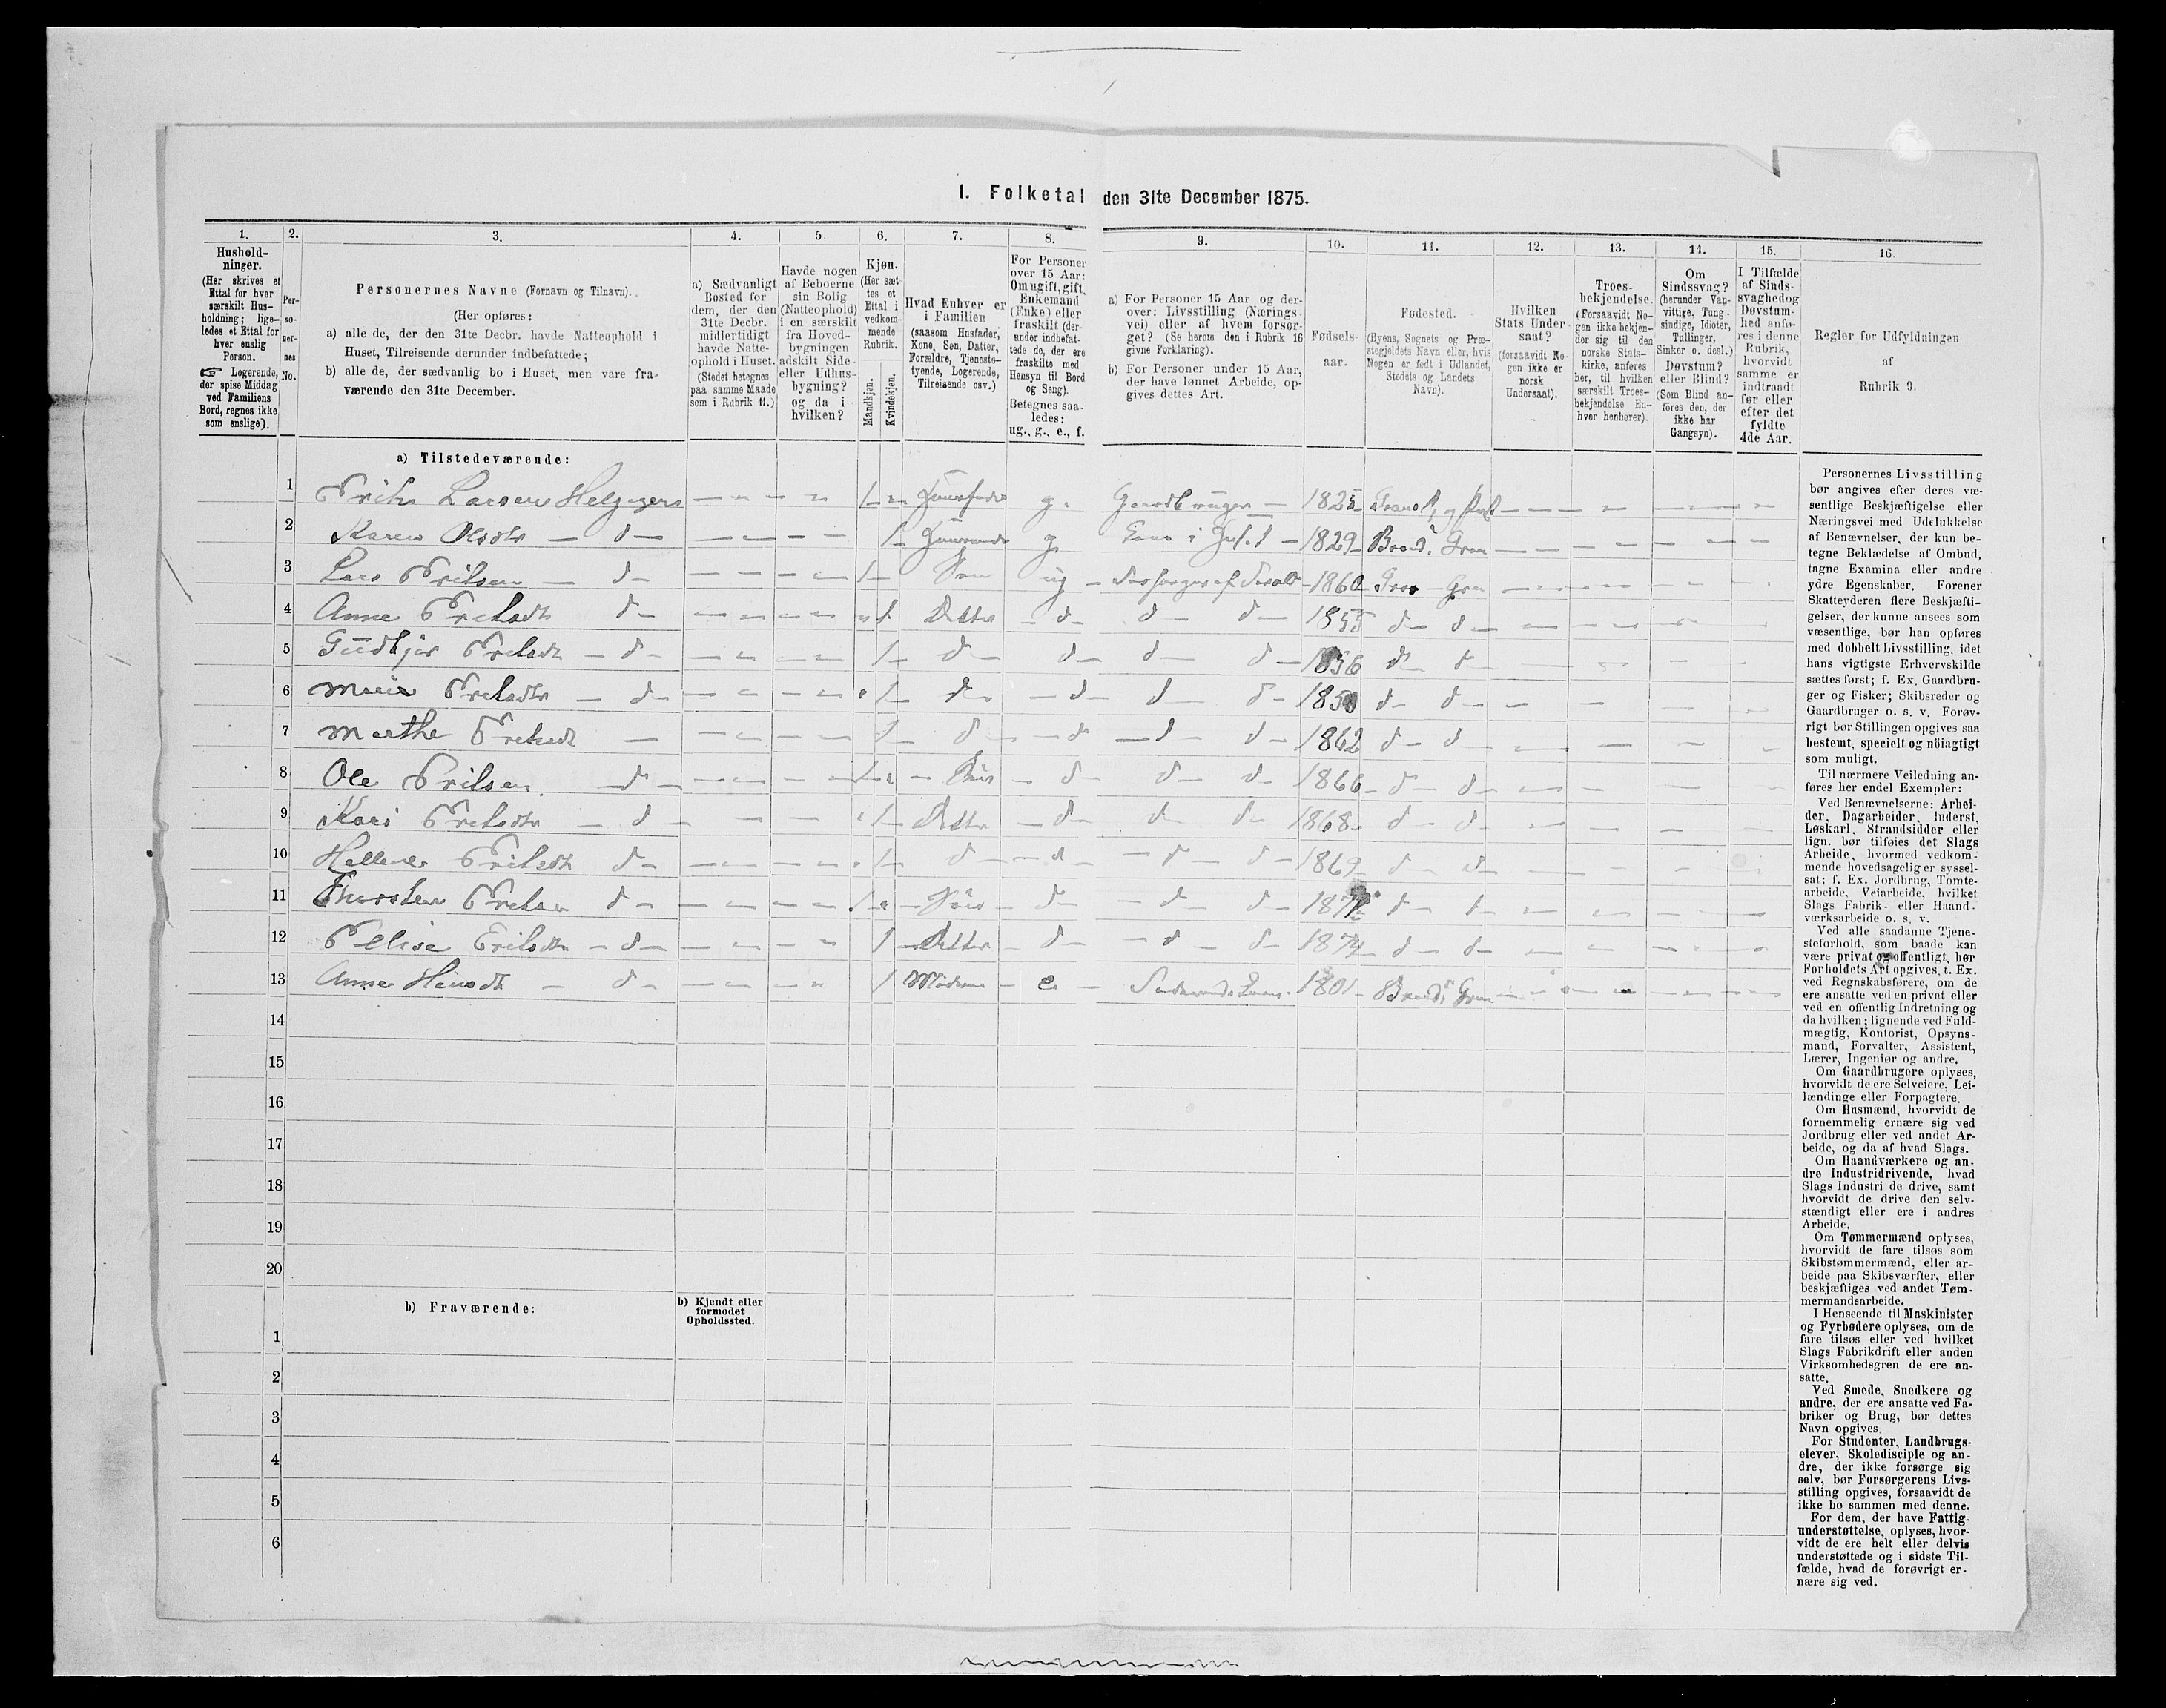 I. Folketal den 31te December 1875.
1.
Hushold-
ninger.
(Her skrives et
Ettal for hver
særskilt Hus-
holdning; lige-
ledes et Ettal for
hver enslig
Person.
☞ Logerende,
der spise Middag
ved Familiens
Bord, regnes ikke
som enslige).
2.
Per-
so-
ner-
nes
No.
3.
Personernes Navne (Fornavn og Tilnavn).
(Her opføres:
a) alle de, der den 31te Decbr. havde Natteophold i
Huset, Tilreisende derunder indbefattede;
b) alle de, der sædvanlig bo i Huset, men vare fra-
værende den 31te December.
4.
a) Sædvanligt
Bosted for
dem, der den
31te Decbr.
midlertidigt
havde Natte-
ophold i Huset.
(Stedet betegnes
paa samme Maade
som i Rubrik 11.)
5.
Havde nogen
af Beboerne
sin Bolig
(Natteophold)
i en særskilt
fra Hoved-
bygningen
adskilt Side-
eller Udhus-
bygning?
og da i
hvilken?
6.
Kjøn.
(Her sæt-
tes et
Ettal i
vedkom-
mende
Rubrik.
Mandkjøn.
Kvindekjøn.
7.
Hvad Enhver er
i Familien
(saasom Husfader,
Kone, Søn, Datter,
Forældre, Tjeneste-
tyende, Logerende,
Tilreisende osv.)
8.
For Personer
over 15 Aar:
Om ugift, gift,
Enkemand
(Enke) eller
fraskilt (der-
under indbefat-
tede de, der ere
fraskilte med
Hensyn til Bord
og Seng).
Betegnes saa-
ledes:
ug., g., e., f.
9.
a) For Personer 15 Aar og der-
over: Livsstilling (Nærings-
vei) eller af hvem forsør-
get? (Se herom den i Rubrik 16
givne Forklaring).
b) For Personer under 15 Aar,
der have lønnet Arbeide, op-
gives dettes Art.
10.
Fødsels-
aar.
11.
Fødested.
(Byens, Sognets og Præ-
stegjeldets Navn eller, hvis
Nogen er født i Udlandet,
Stedets og Landets
Navn).
12.
Hvilken
Stats Under-
saat?
(forsaavidt No-
gen ikke er
norsk
Undersaat).
13.
Troes-
bekjendelse.
(Forsaavidt No-
gen ikke bekjen-
der sig til den
norske Stats-
kirke, anføres
her, til hvilken
særskilt Troes-
bekjendelse En-
hver henhører).
14.
Om
Sindssvag?
(herunder Van-
vittige, Tung-
sindige, Idioter,
Tullinger,
Sinker o. desl.)
Døvstum?
eller Blind?
(Som Blind an-
føres den, der
ikke har
Gangsyn).
15.
I Tilfælde
af Sinds-
svaghedog
Døvstum-
hed anfø-
res i denne
Rubrik,
hvorvidt
samme er
indtraadt
før eller
efter det
fyldte
4de Aar.
16.
Regler for Udfyldningen
af
Rubrik 9.
a) Tilstedeværende:
1 Larsen g. Gaardbruger 1825
2 Karen Olsdtr d g 1829 Brand. Gran
3 Lars d Søn ug 1860 Gran Gran
4 Anne d Datter d d d 1855 d d
5 d d d d d 1856 d d
6 Marie d d d d d d d
7 Marthe d d d d 1862 d d
8 Ole d d d d 1866 d d
9 Kari d Datter d d d 1868 d d
10 d d d d d 1869 d d
11 d d d d d d
12 d Datter d d d 1874 d d
13 Anne d e 1801 Brand. Gran
14
15
16
17
18
19
20
b) Fraværende:
b) Kjendt eller
formodet
Opholdssted.
1
2
3
4
5
6
Personernes Livsstilling
bør angives efter deres væ-
sentlige Beskjæftigelse eller
Næringsvei med Udelukkelse
af Benævnelser, der kun be-
tegne Beklædelse af Ombud,
tagne Examina eller andre
ydre Egenskaber. Forener
Skatteyderen flere Beskjæfti-
gelser, der kunne ansees som
væsentlige, bør han opføres
med dobbelt Livsstilling, idet
hans vigtigste Erhvervskilde
sættes først; f. Ex. Gaardbru-
ger og Fisker; Skibsreder og
Gaardbruger o. s. v. Forøv-
rigt bør Stillingen opgives saa
bestemt, specielt og nöiagtigt
som muligt.
Til nærmere Veiledning an-
føres her endel Exempler:
Ved Benævnelserne: Arbei-
der, Dagarbeider, Inderst,
Løskarl, Strandsidder eller
lign. bør tilføies det Slags
Arbeide, hvormed vedkom-
mende hovedsagelig er syssel-
sat; f. Ex. Jordbrug, Tomte-
arbeide, Veiarbeide, hvilket
Slags Fabrik- eller Haand-
værksarbeide o. s. v.
Ved alle saadanne Tjene-
steforhold, som baade kan
være privat og offentligt, bør
Forholdets Art opgives, t. Ex.
ved Regnskabsførere, om de
ere ansatte ved en privat eller
ved en offentlig Indretning og
da hvilken; lignende ved Fuld-
mægtig, Kontorist, Opsyns-
mand, Forvalter, Assistent,
Lærer, Ingeniør og andre.
Om Gaardbrugere oplyses,
hvorvidt de ere Selveiere, Lei-
lændinge eller Forpagtere.
Om Husmænd, hvorvidt de
fornemmelig ernære sig ved
Jordbrug eller ved andet Ar-
beide, og da af hvad Slags.
Om Haandværkere og an-
dre Industridrivende, hvad
Slags Industri de drive, samt
hvorvidt de drive den selv-
stændigt eller ere i andres
Arbeide.
Om Tømmermænd oplyses,
hvorvidt de fare tilsøs som
Skibstømmermænd, eller ar-
beide paa Skibsværfter, eller
beskjæftiges ved andet Tøm-
mermandsarbeide.
I Henseende til Maskinister
og Fyrbødere oplyses, om de
fare tilsøs eller ved hvilket
Slags Fabrikdrift eller anden
Virksomhedsgren de ere an-
satte.
Ved Smede, Snedkere og
andre, der ere ansatte ved Fa-
briker og Brug, bør dettes
Navn opgives.
For Studenter, Landbrugs-
elever, Skoledisciple og an-
dre, der ikke forsørge sig
selv, bør Forsørgerens Livs-
stilling opgives, forsaavidt de
ikke bo sammen med denne.
For dem, der have Fattig-
understøttelse, oplyses, hvor-
vidt de ere helt eller delvis
understøttede og i sidste Til-
fælde, hvad de forøvrigt er-
nære sig ved.